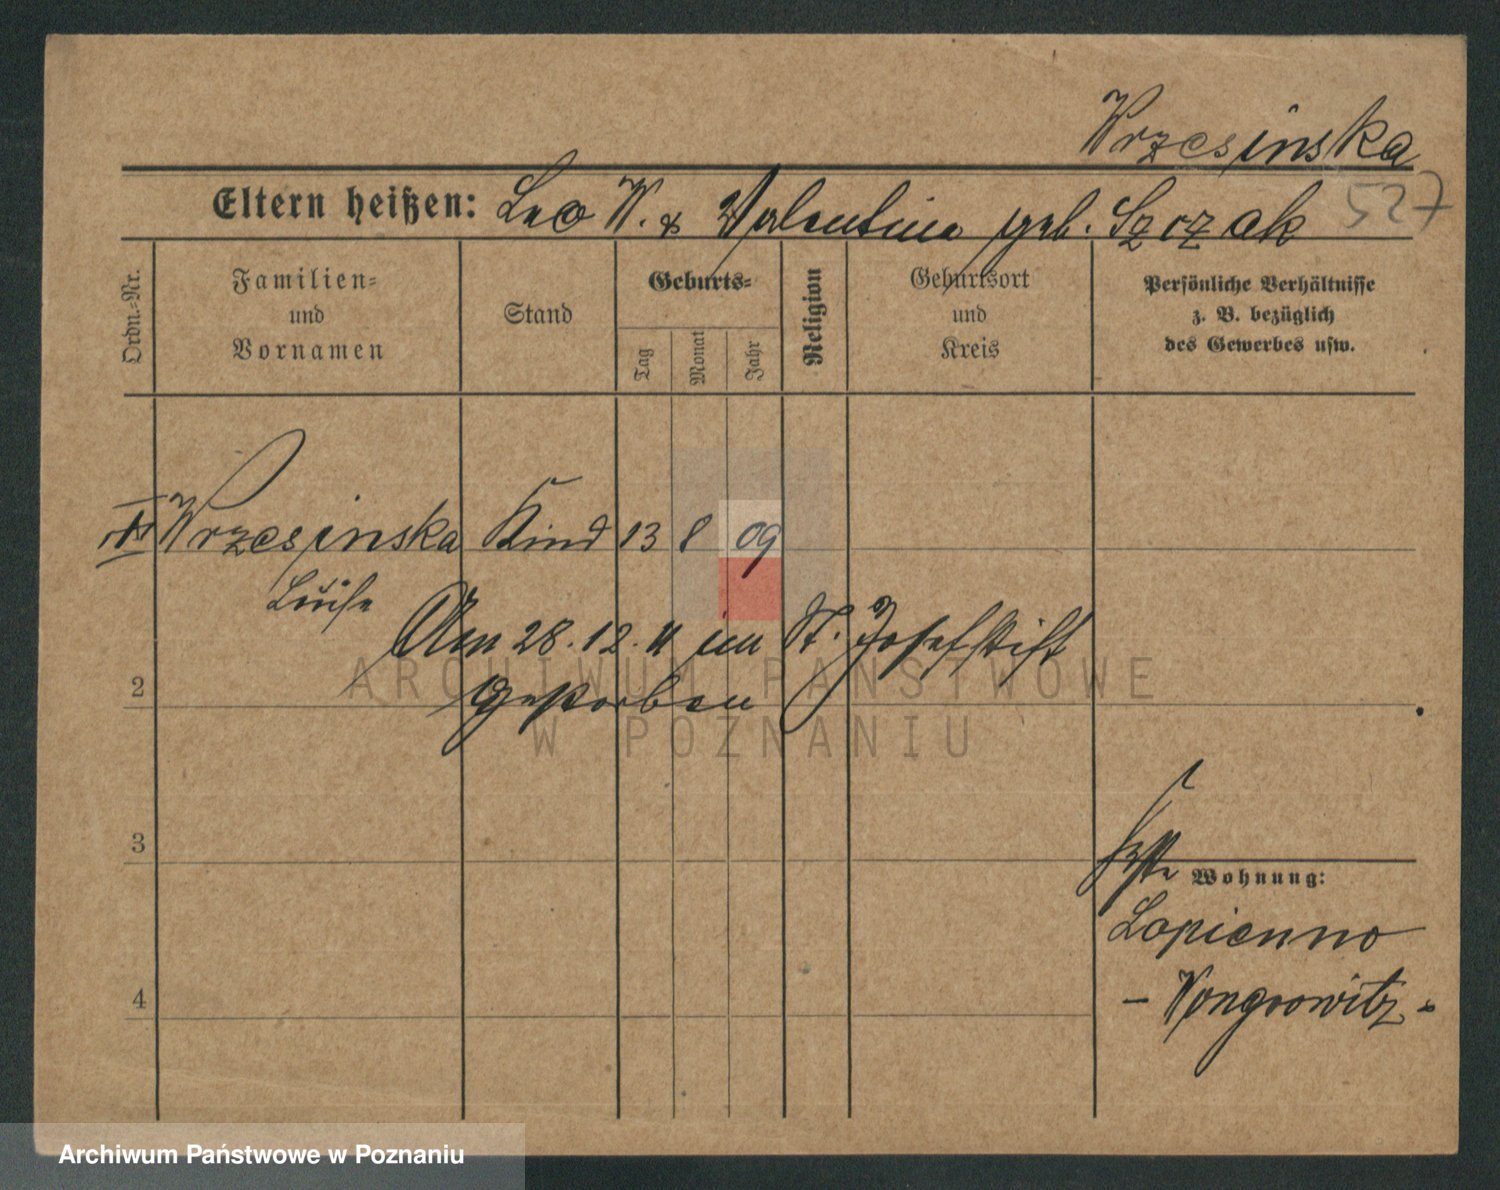 Wrzesinska
Eltern heißen: Leo W. & Valentina geb. Szczak
527
Ordn.-Nr.
Familien- und Vornamen
Stand
Geburts-
Tag
Monat
Jahr
Religion
Geburtsort und Kreis
Persönliche Verhältnisse
z. B. bezüglich
des Gewerbes usw.
Wrzesinska Kind 13 8 09
Luise
Am 28.12.11 im St. Josefstift
gestorben
2
3
4
Wohnung:
Lopienno
- Wongrowitz -
ARCHIWUM PAŃSTWOWE
W POZNANIU
Archiwum Państwowe w Poznaniu